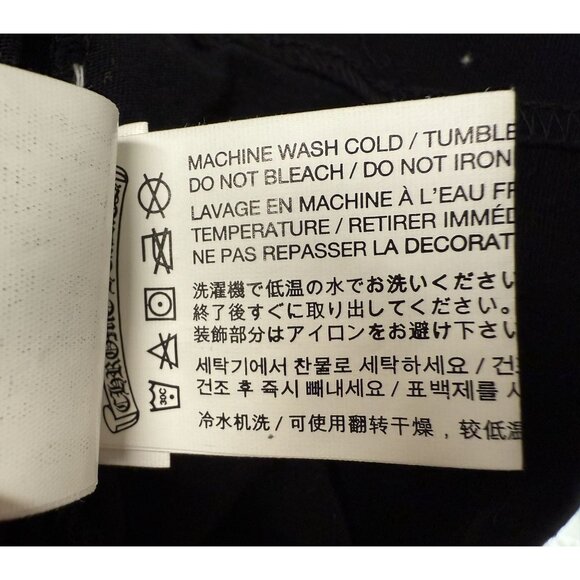 MACHINE WASH COLD / TUMBLE
DO NOT BLEACH / DO NOT IRON
LAVAGE EN MACHINE À L'EAU FR
TEMPÉRATURE / RETIRER IMMÉD
NE PAS REPASSER LA DECORAT
洗濯機で低温の水でお洗いください
終了後すぐに取り出してください。
装飾部分はアイロンをお避け下さい
세탁기에서 찬물로 세탁하세요 / 건
건조 후 즉시 빼내세요 / 표백제를 사
冷水机洗 / 可使用翻转干燥，较低温
30C
CHROME